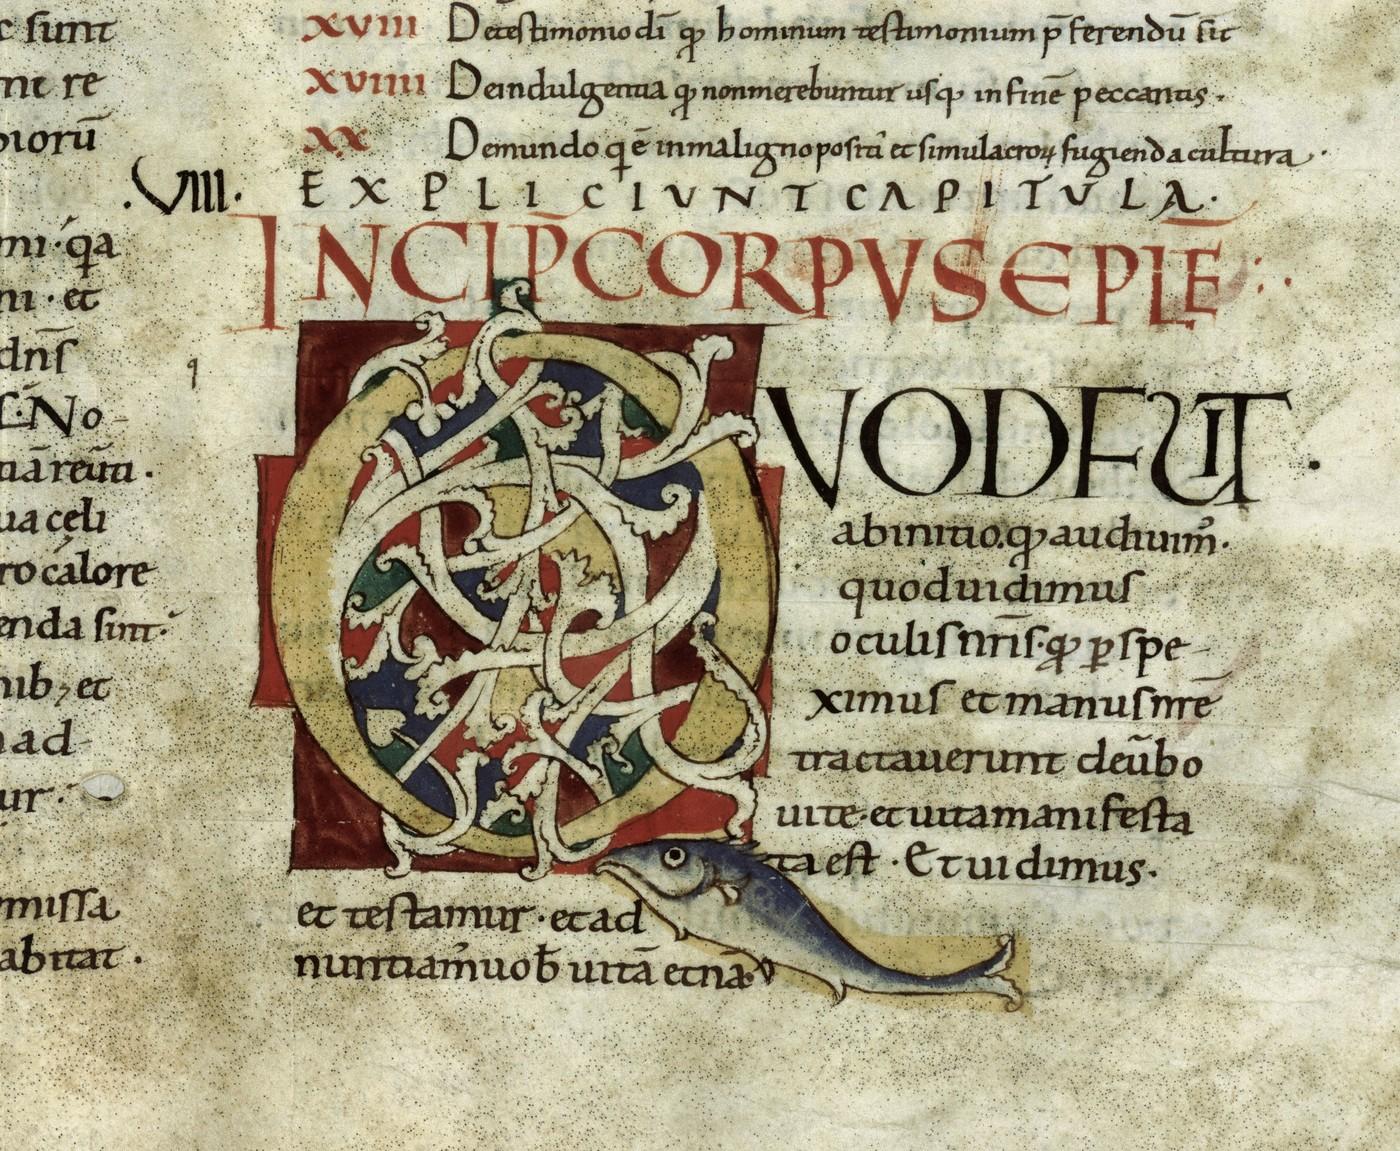 c sunt
me re
piorū
mi·q̄a
ni· et
dn̄s
L·No
tiā reuti·
ua cęli
ro cálore
enda sint·
nib; et
ad
ur·
missa
abitat·
XVIII De testimonio dī qđ hominum testimonium p̄ferendū sit
XVIIII De indulgentia qđ non merebuntur usq; in finē peccantis·
XX De mundo q̄ ē in maligno positū et simulacroꝝ fugienda cultura·
·VIII· EXPLICIUNT CAPITULA·
INCIP̄ CORPVS EPLĒ
q
QVOD FUIT·
ab initio· qđ audiuim᷒·
quod uidimus
oculis nr̄is· qđ ꝑspe
ximus et manus nrē
tractauerunt de ūbo
uite· et uita manifesta
ta est· Et uidimus·
et testamur· et ad
nuntiam᷒ uob̄ uitā etnā